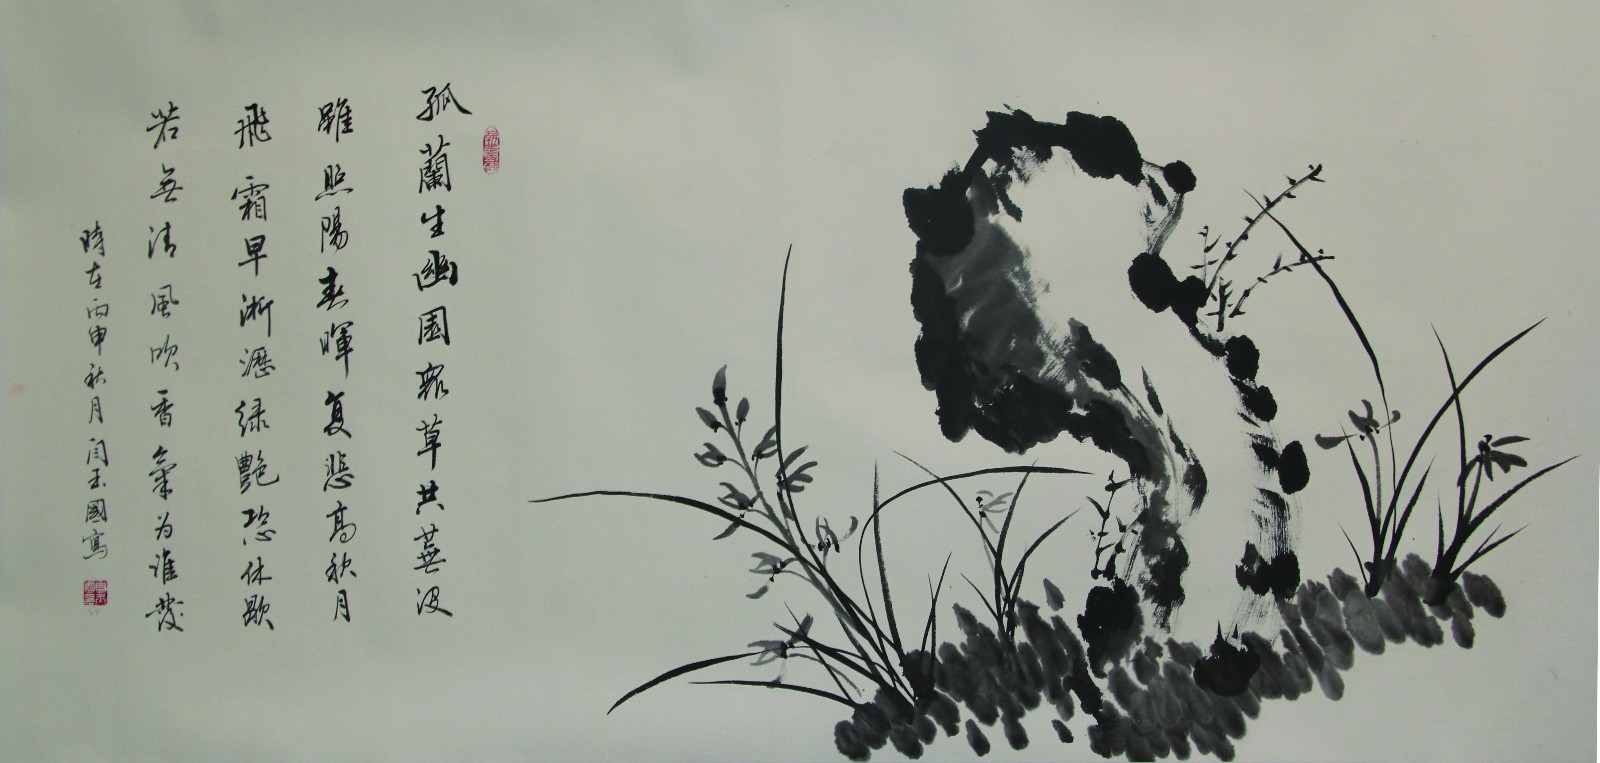 孤蘭生幽園眾草共蕪没
雖照陽春暉复悲高秋月
飛霜早淅瀝绿艷恐休歇
若無清風吹香氣为誰發
時在丙申秋月闫玉國寫